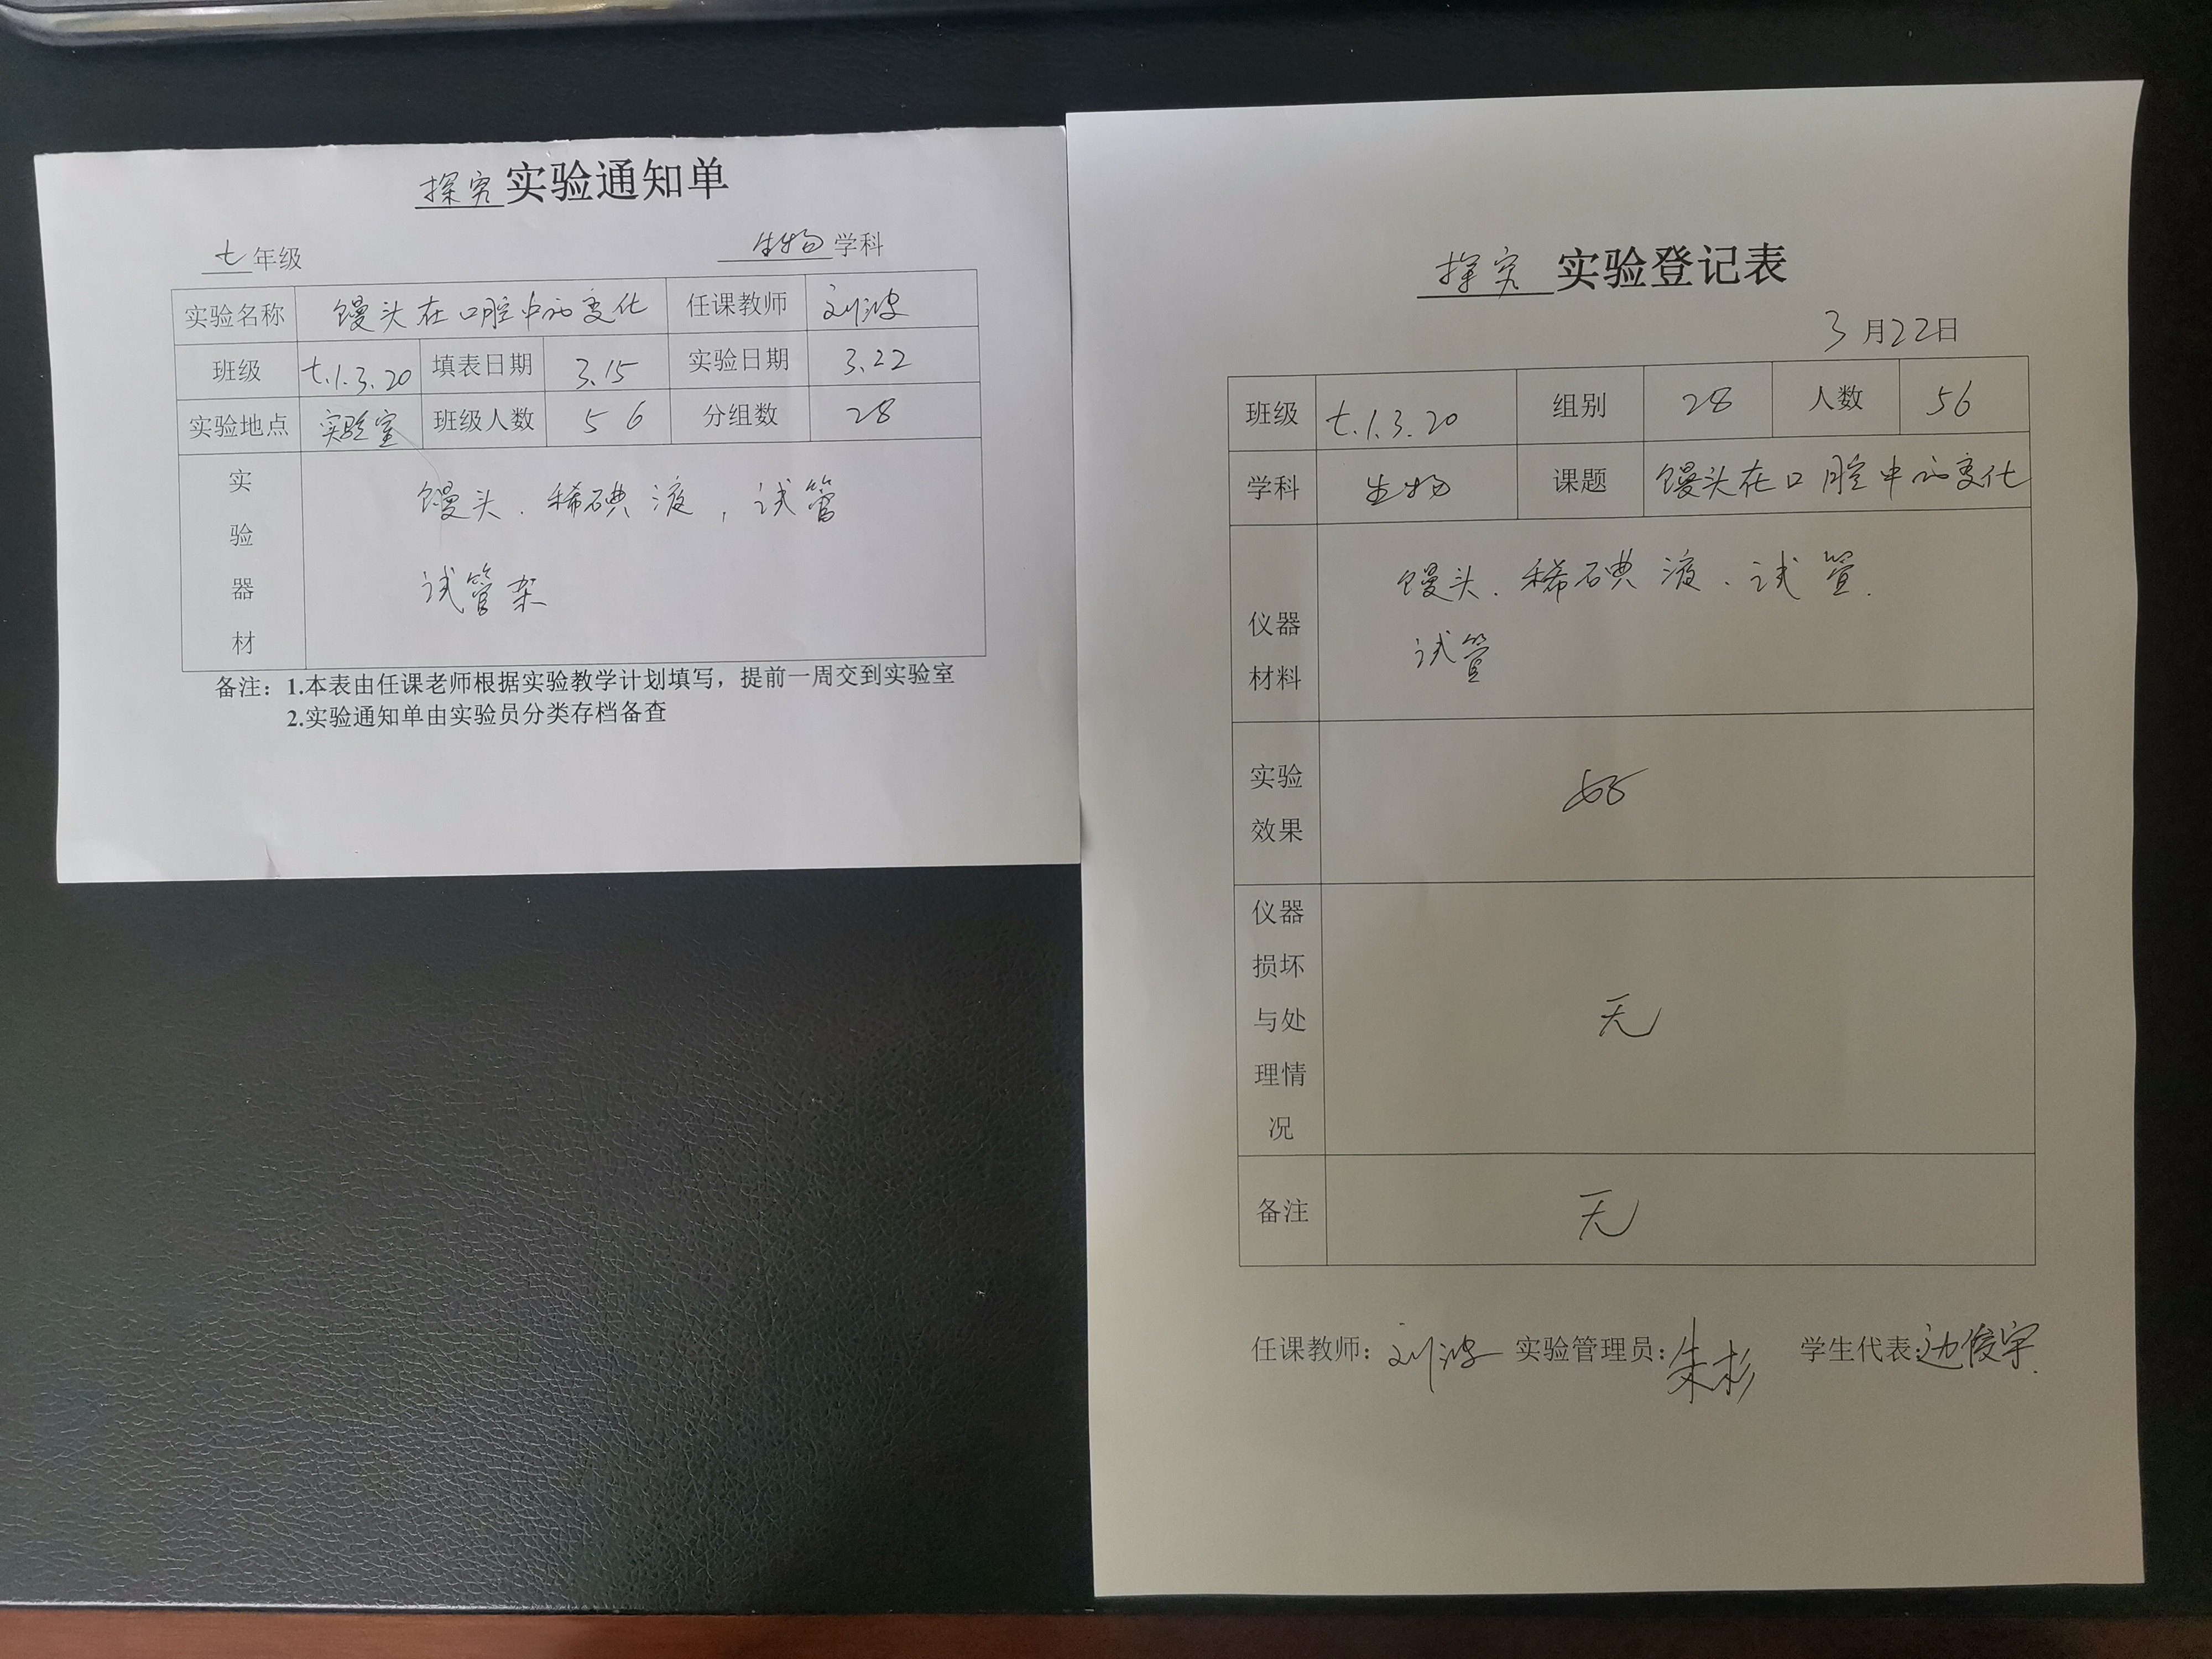 探究实验通知单
七年级 生物学科
实验名称 馒头在口腔中的变化 任课教师 刘波
班级 七.1.3.20 填表日期 3.15 实验日期 3.22
实验地点 实验室 班级人数 56 分组数 28
实验器材 馒头.稀碘液,试管
试管架
备注:1.本表由任课老师根据实验教学计划填写,提前一周交到实验室
2.实验通知单由实验员分类存档备查
探究实验登记表
3月22日
班级 七.1.3.20 组别 28 人数 56
学科 生物 课题 馒头在口腔中的变化
仪器材料 馒头.稀碘液.试管.
试管
实验效果 好
仪器损坏与处理情况 无
备注 无
任课教师:刘波 实验管理员:朱杉 学生代表:边俊宇.